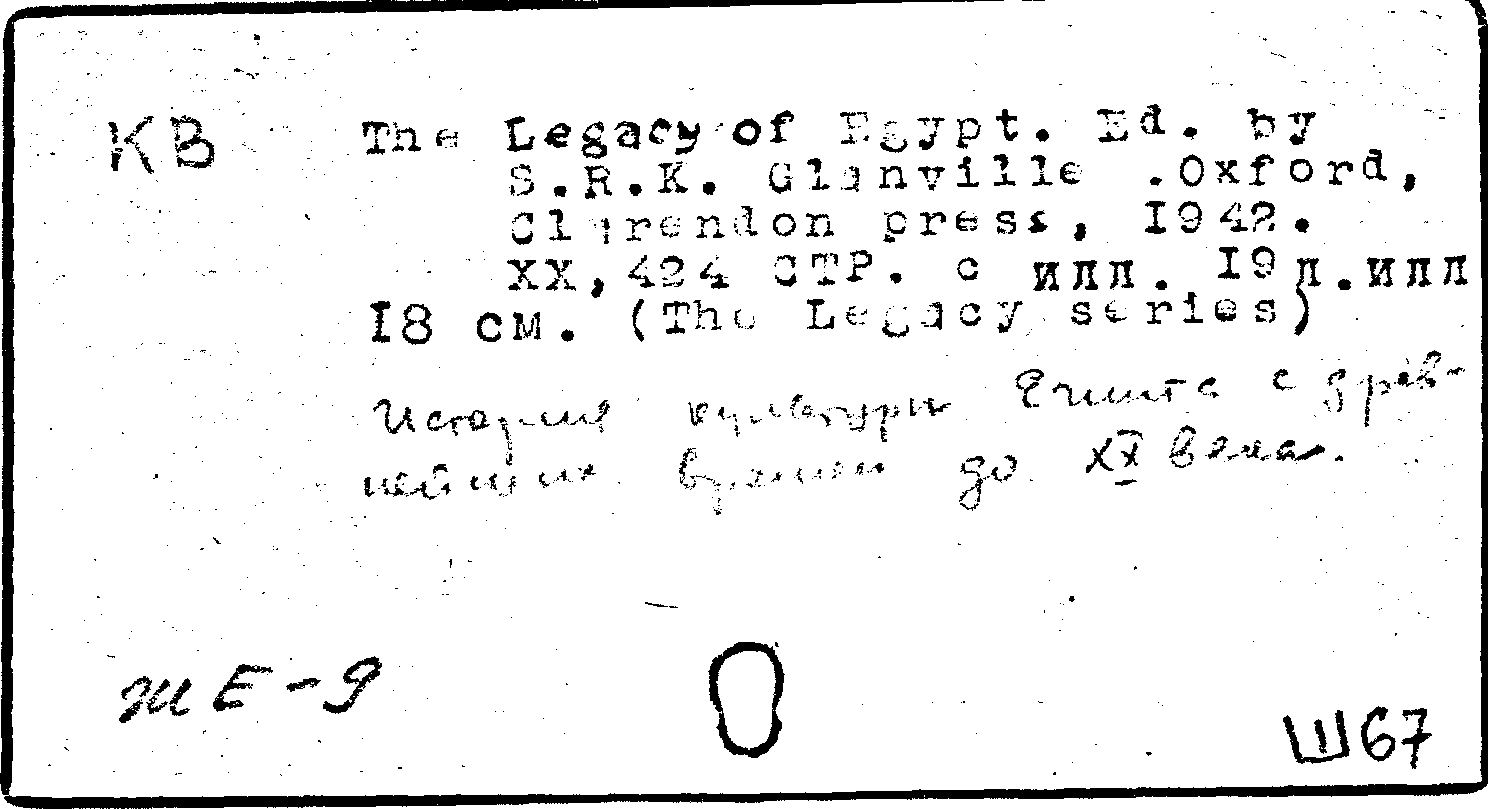 КВ The Legacy of Egypt. Ed. by
S.R.K. Glanville .Oxford,
Clarendon press, I942.
XX,424 СТР. с илл. I9л.илл
I8 см. (The Legacy series)
История культуры Египта с древ-
нейших времен до XX века.
ЖЕ-9
Ш67